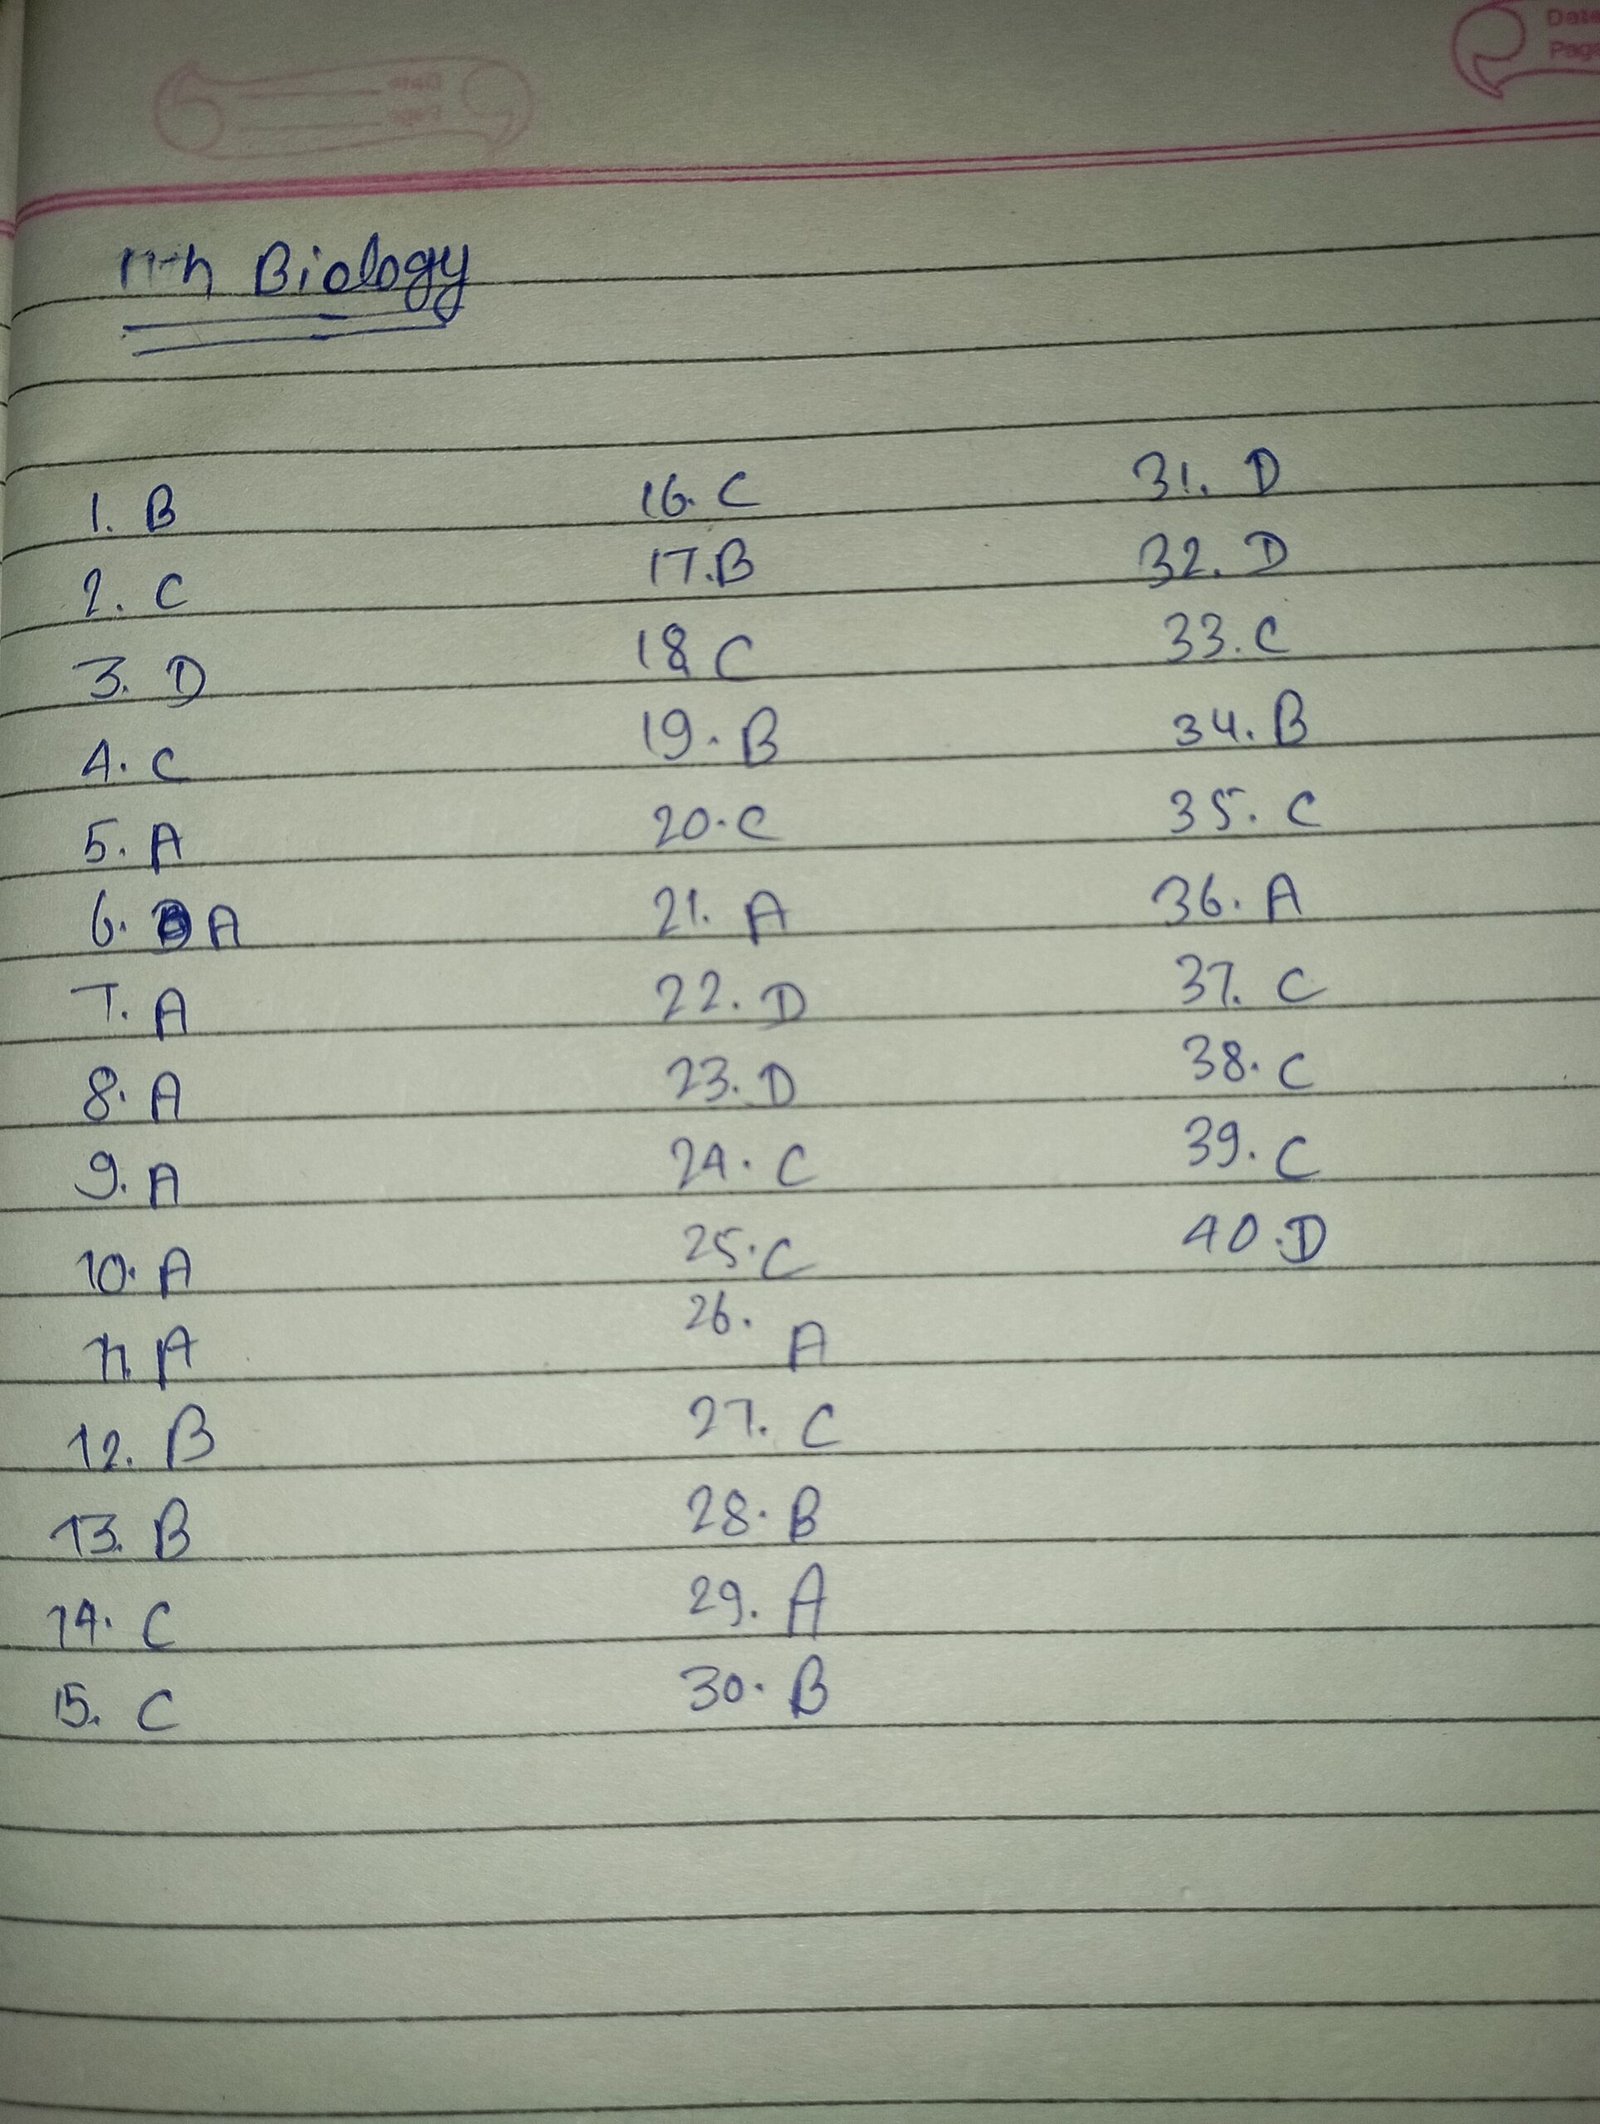 Date
Page
Date
Page
11th Biology
1. B
2. C
3. D
4. C
5. A
6. A
7. A
8. A
9. A
10. A
11. A
12. B
13. B
14. C
15. C
16. C
17. B
18 C
19. B
20. C
21. A
22. D
23. D
24. C
25. C
26. A
27. C
28. B
29. A
30. B
31. D
32. D
33. C
34. B
35. C
36. A
37. C
38. C
39. C
40. D